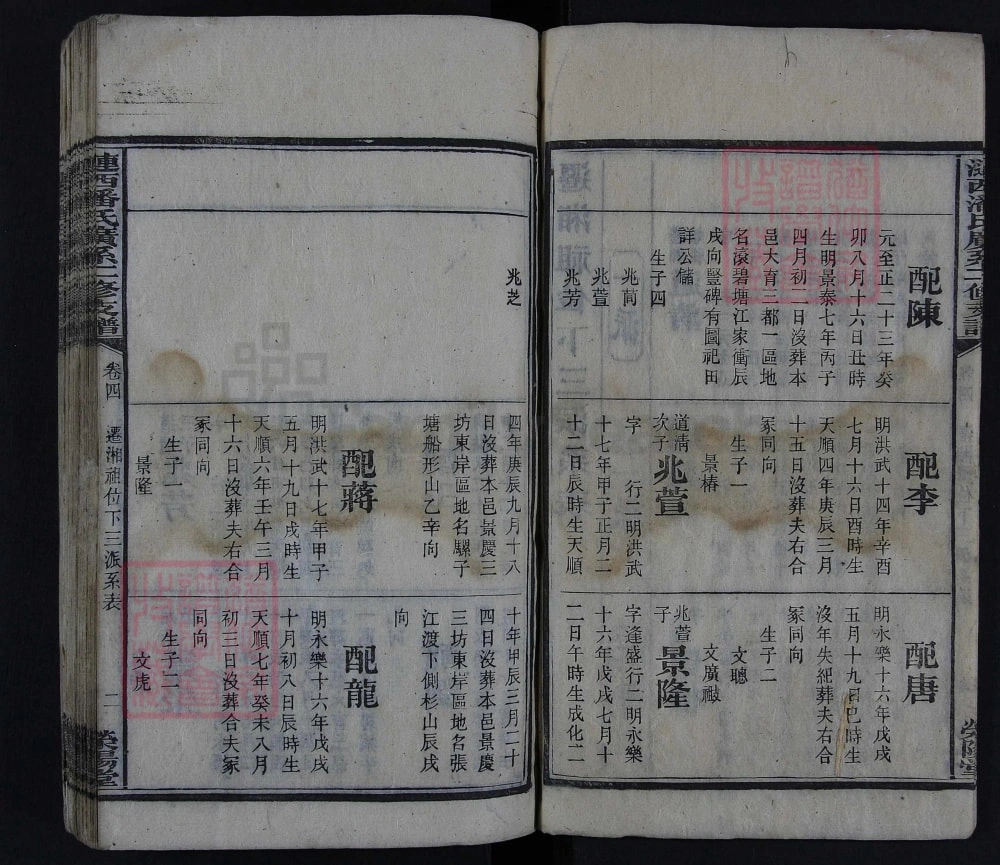 配陳
元至正二十三年癸
卯八月十六日丑時
生明景泰七年丙子
四月初二日沒葬本
邑大育三都一區地
名滾碧塘江家衝辰
戌向豎碑有圖祀田
詳公儲
生子四
兆茼
兆萱
兆芳
配李
明洪武十四年辛酉
七月十六日酉時生
天順四年庚辰三月
十五日沒葬夫右合
冢同向
生子一
景椿
道清
次子
兆萱
字 行二明洪武
十七年甲子正月二
十二日辰時生天順
配唐
明永樂十六年戊戌
五月十九日巳時生
沒年失紀葬夫右合
冢同向
生子二
文聰
文廣
兆萱
子
景隆
字逢盛行二明永樂
十六年戊戌七月十
二日午時生成化二
兆芝
四年庚辰九月十八
日沒葬本邑景慶三
坊東岸區地名騾子
塘船形山乙辛向
配蔣
明洪武十七年甲子
五月十九日戌時生
天順六年壬午三月
十六日沒葬夫右合
冢同向
生子一
景隆
十年甲辰三月二十
四日沒葬本邑景慶
三坊東岸區地名張
江渡下側杉山辰戌
向
配龍
明永樂十六年戊戌
十月初八日辰時生
天順七年癸未八月
初三日沒葬合夫冢
同向
生子二
文虎
漣西潘氏廣系二修支譜
卷四
遷湘祖位下三派系表
二
滎陽堂